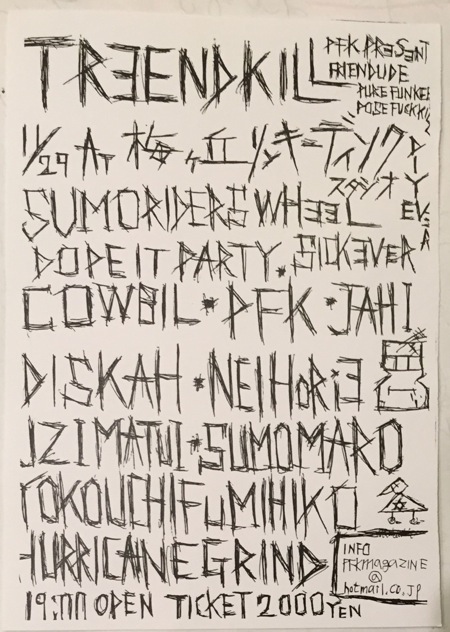 TREENDKILL
PFK PRESENT
FRIENDUDE
PURE FUNKE
POSE FUCKKI
11/29 AT 梅ヶ丘リンキーディンク
スタジオ
DIY
EVER
SUMORIDERS WHEEL
DOPE IT PARTY * SICKEVER
COWBIL * PFK * JAHI
DISKAH * NEIHORiE
JZI MATUI * SUMOMARO
TOKOUCHIFUMIHIKO
HURRICANEGRIND
INFO
PFKmagazine
@
hotmail.co.jp
19:00 OPEN TICKET 2000YEN